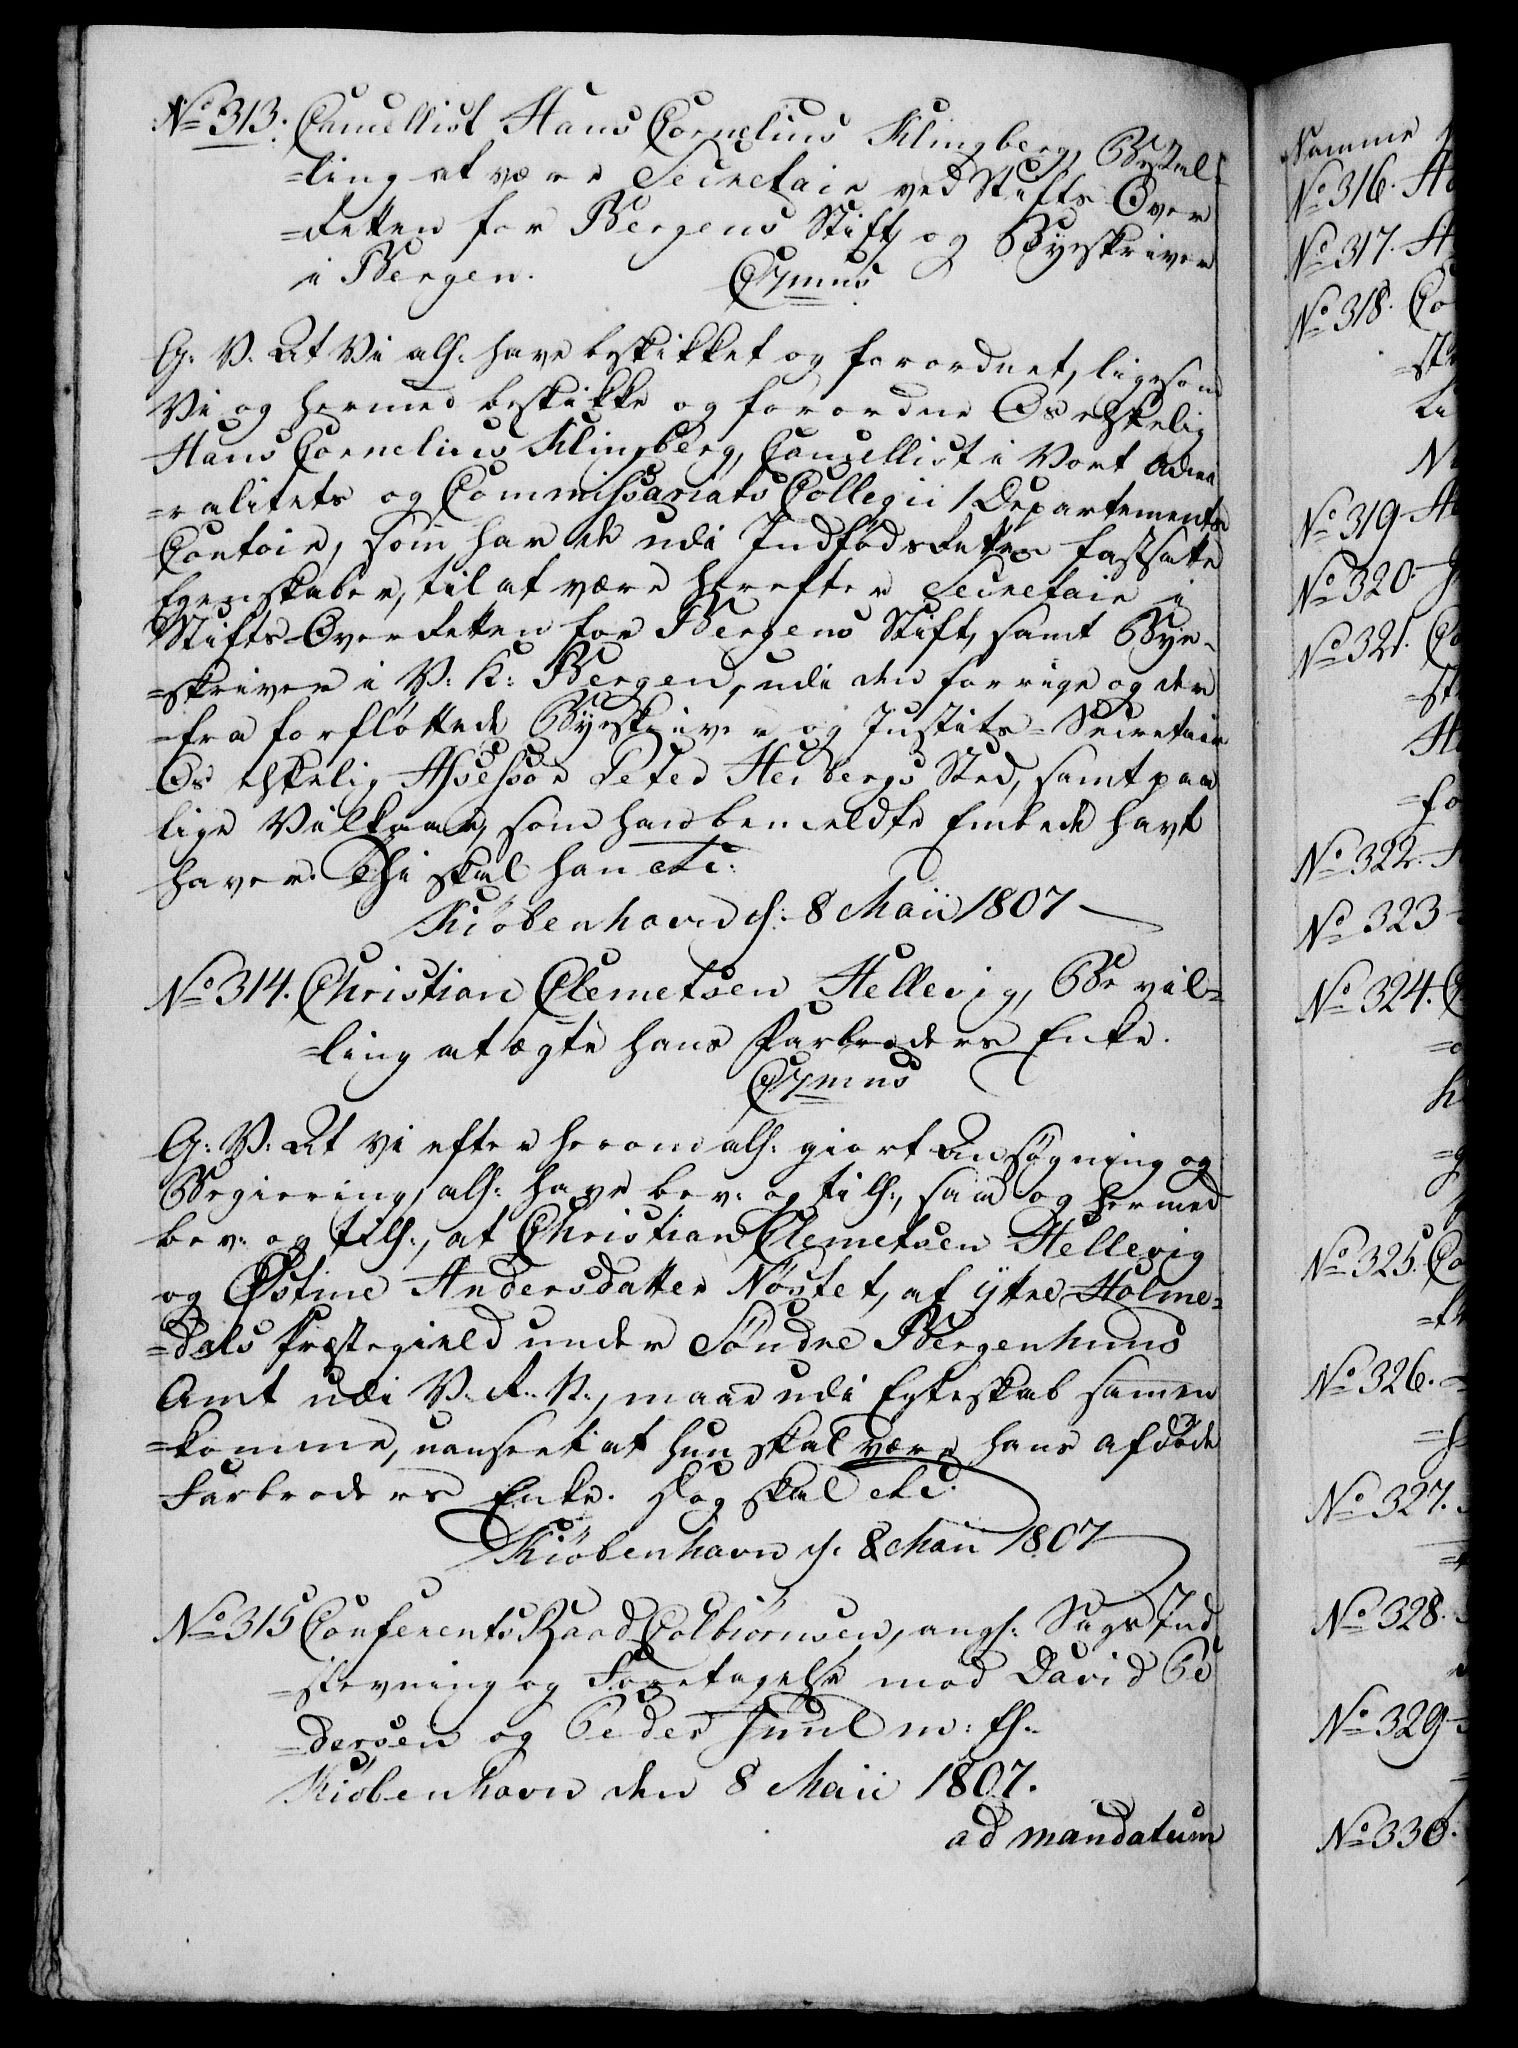 No 313. Cancellist Hans Cornelius Klingberg, Bestal-
=ling at være Secretair ved Stifts Over
=Retten for Bergens Stift og Byeskriver
i Bergen. C7mus
G: V. At Vi alh: have beskikket og forordnet, ligesom
Vi og hermed beskikke og forordne Os elskelig
Hans Cornelius Klingberg, Cancellist i Vort Admi
=ralitets og Commissariats Collegii 1 Departements
Contoir, som har de udi Indfødsretten fastsatte
Egenskaber, til at være herefter Secretair i
Stifts-Overretten for Bergens Stift, samt Bye-
=skriver i V: K: Bergen, udi den forrige og der
=fra forfløttede Byeskriver og Justits-Secretair
Os elskelig Assessor Peter Heibergs Sted, samt paa
lige Vilkaar, som han bemeldte Embede havt
haver. Thi skal han etc:
Kiøbenhavn d: 8 Maii 1807
No 314. Christian Clemetsen Hellevig, Bevil-
=ling at ægte hans Farbroders Enke.
C7mus
G: V: At Vi efter herom alh: giort Ansøgning og
Begiering, alh: have bev: og tilh:, saa og hermed
bev: og tilh:, at Christian Clemetsen Hellevig
og Østine Andersdatter Nöstet, af ÿtre Holme=
=dals Præstegield under Söndre Bergenhuus
Amt udi V. R. N., maae udi Egteskab sammen
=komme, uanseet at hun skal være hans afdøde
Farbroders Enke. Dog skal etc.
Kiøbenhavn d: 8 Maii 1807
No 315 Conferents Raad Colbiörnsen, angl: Sags Ind
=stevning og Foretagelse mod David Pe
=dersen og Peder Juul m: fl.
Kiøbenhavn den 8 Maii 1807.
ad mandatum
Samme
No 316. H
No 317. H
No 318. Co
No 319
No 320.
No 321. Co
No 322.
No 323
No 324. C
No 325. Co
No 326.
No 327.
No 328.
No 329
No 330.